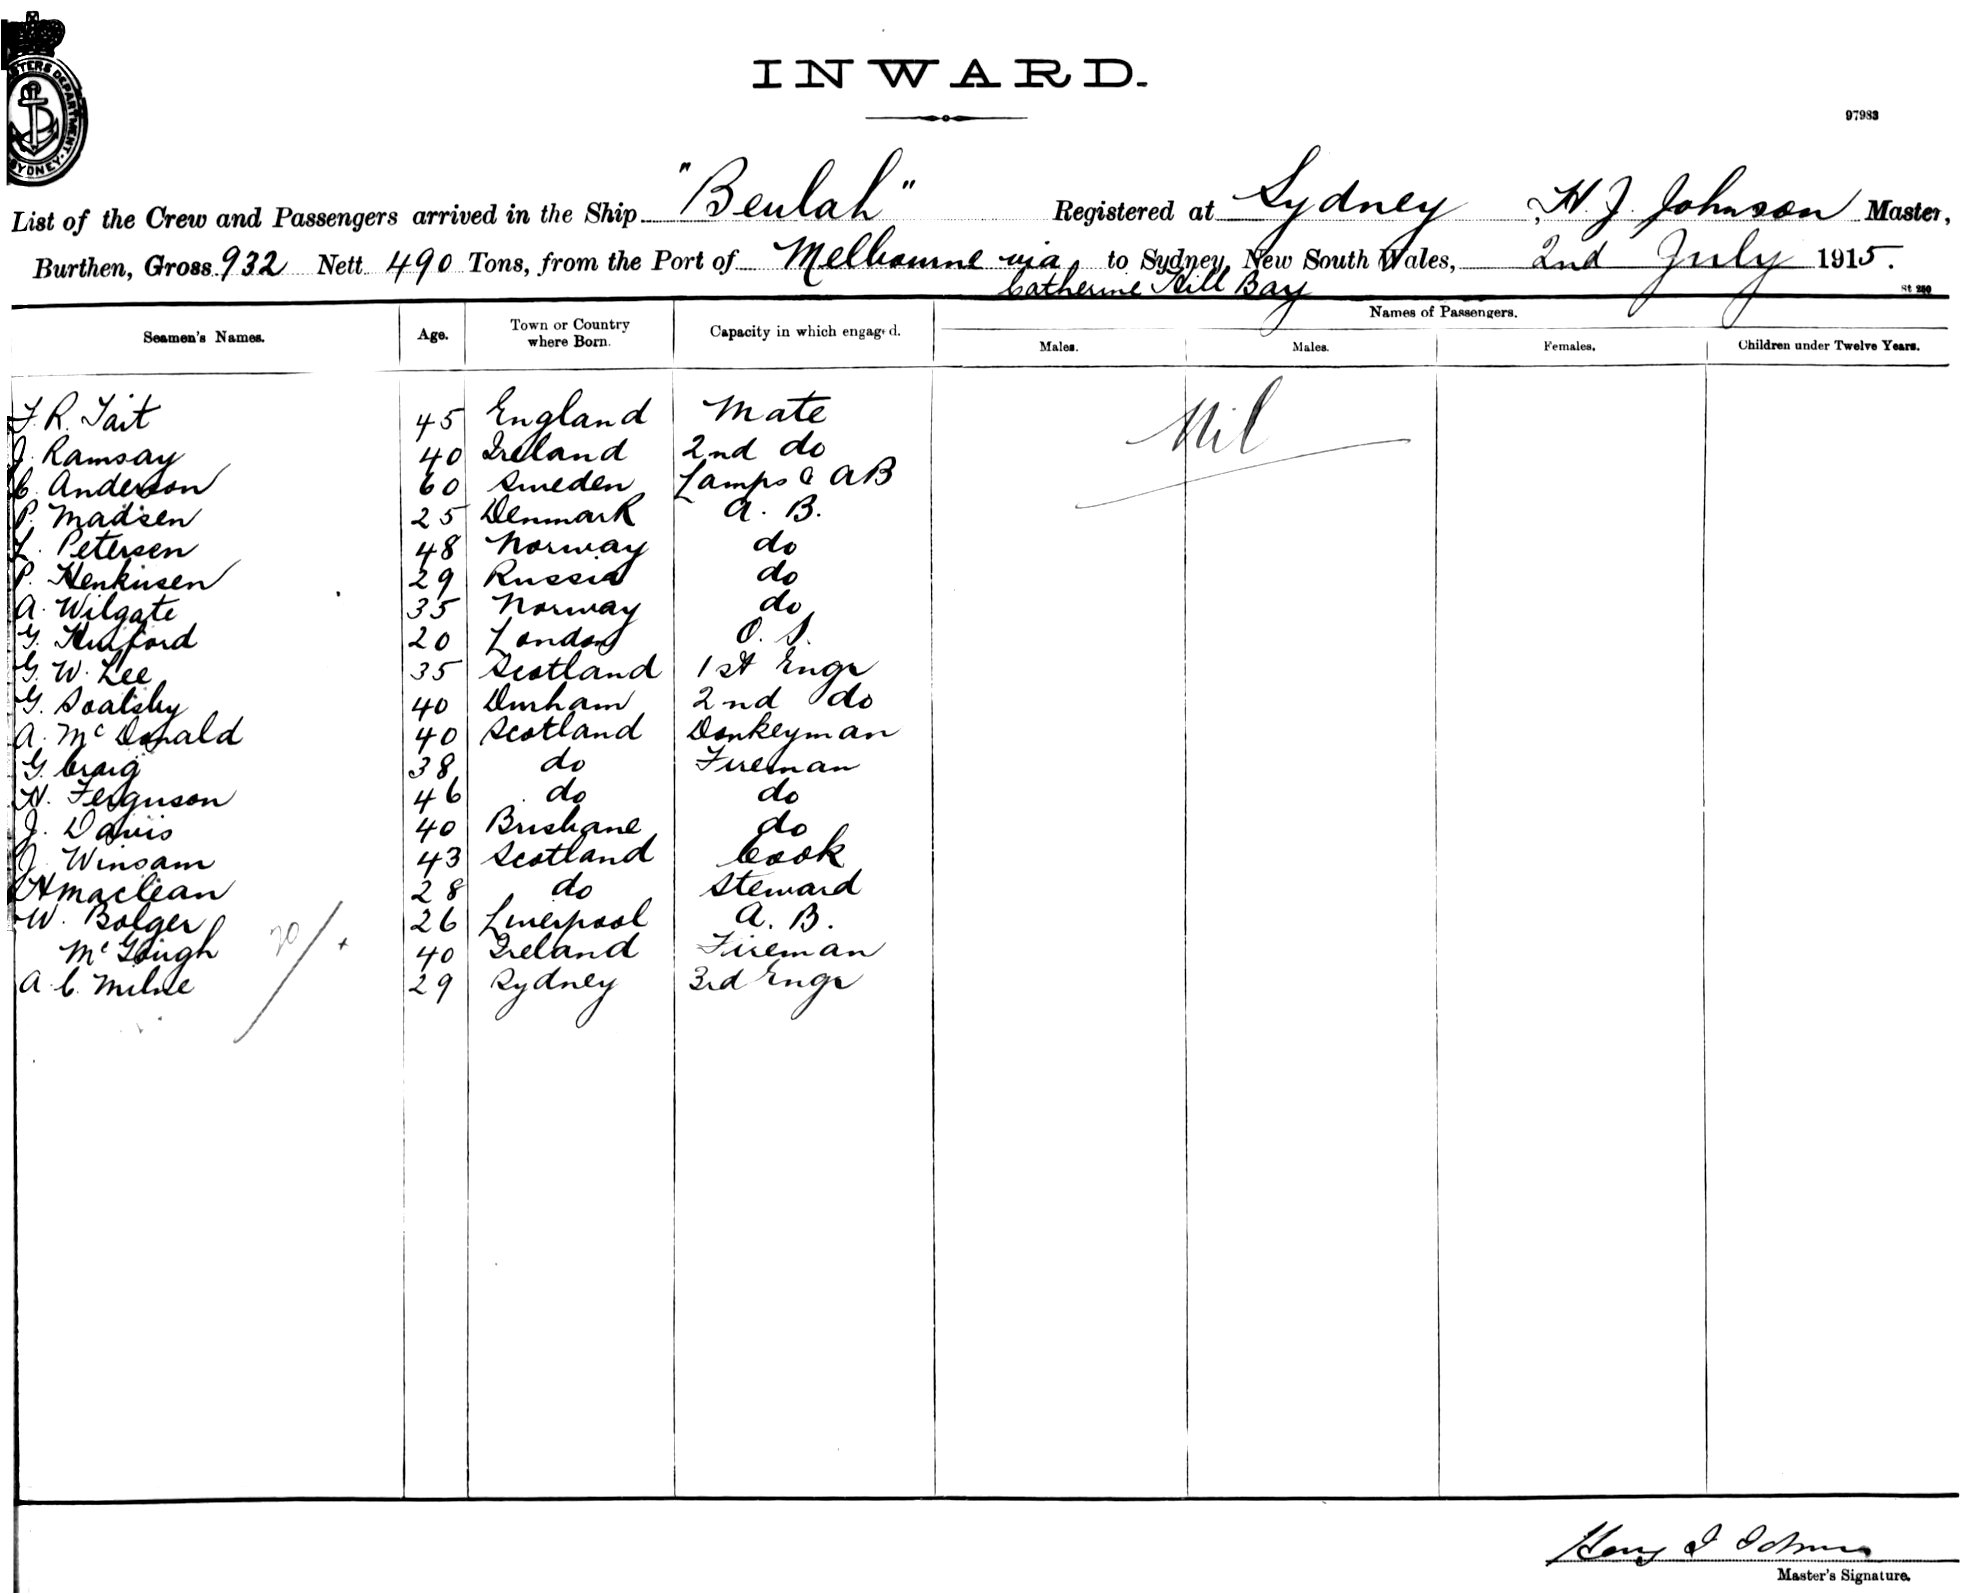 INWARD.
97983
List of the Crew and Passengers arrived in the Ship "Beulah" Registered at Sydney, H. J. Johnson Master,
Burthen, Gross 932 Nett 490 Tons, from the Port of Melbourne via to Sydney, New South Wales, 2nd July 1915.
Catherine Hill Bay
St 250
Seamen's Names. Age. Town or Country where Born. Capacity in which engaged. Names of Passengers.
Males. Males. Females. Children under Twelve Years.
F. R. Tait 45 England Mate Nil
J. Ramsay 40 Ireland 2nd do
C. Anderson 60 Sweden Lamps & AB
P. Madsen 25 Denmark A. B.
L. Petersen 48 Norway do
P. 29 Russia do
A. Wilgate 35 Norway do
G. 20 London O. S.
G. W. Lee 35 Scotland 1st Engr
G. Soalsby 40 Durham 2nd do
A. McDonald 40 Scotland Donkeyman
G. Craig 38 do Fireman
H. Ferguson 46 do do
J. Davis 40 Brisbane do
J. Winsam 43 Scotland Cook
H Maclean 28 do Steward
W. Bolger 26 Liverpool A. B.
McGough 40 Ireland Fireman
20/ +
A. C. Milne 29 Sydney 3rd Engr
Henry J Johnson
Master's Signature.